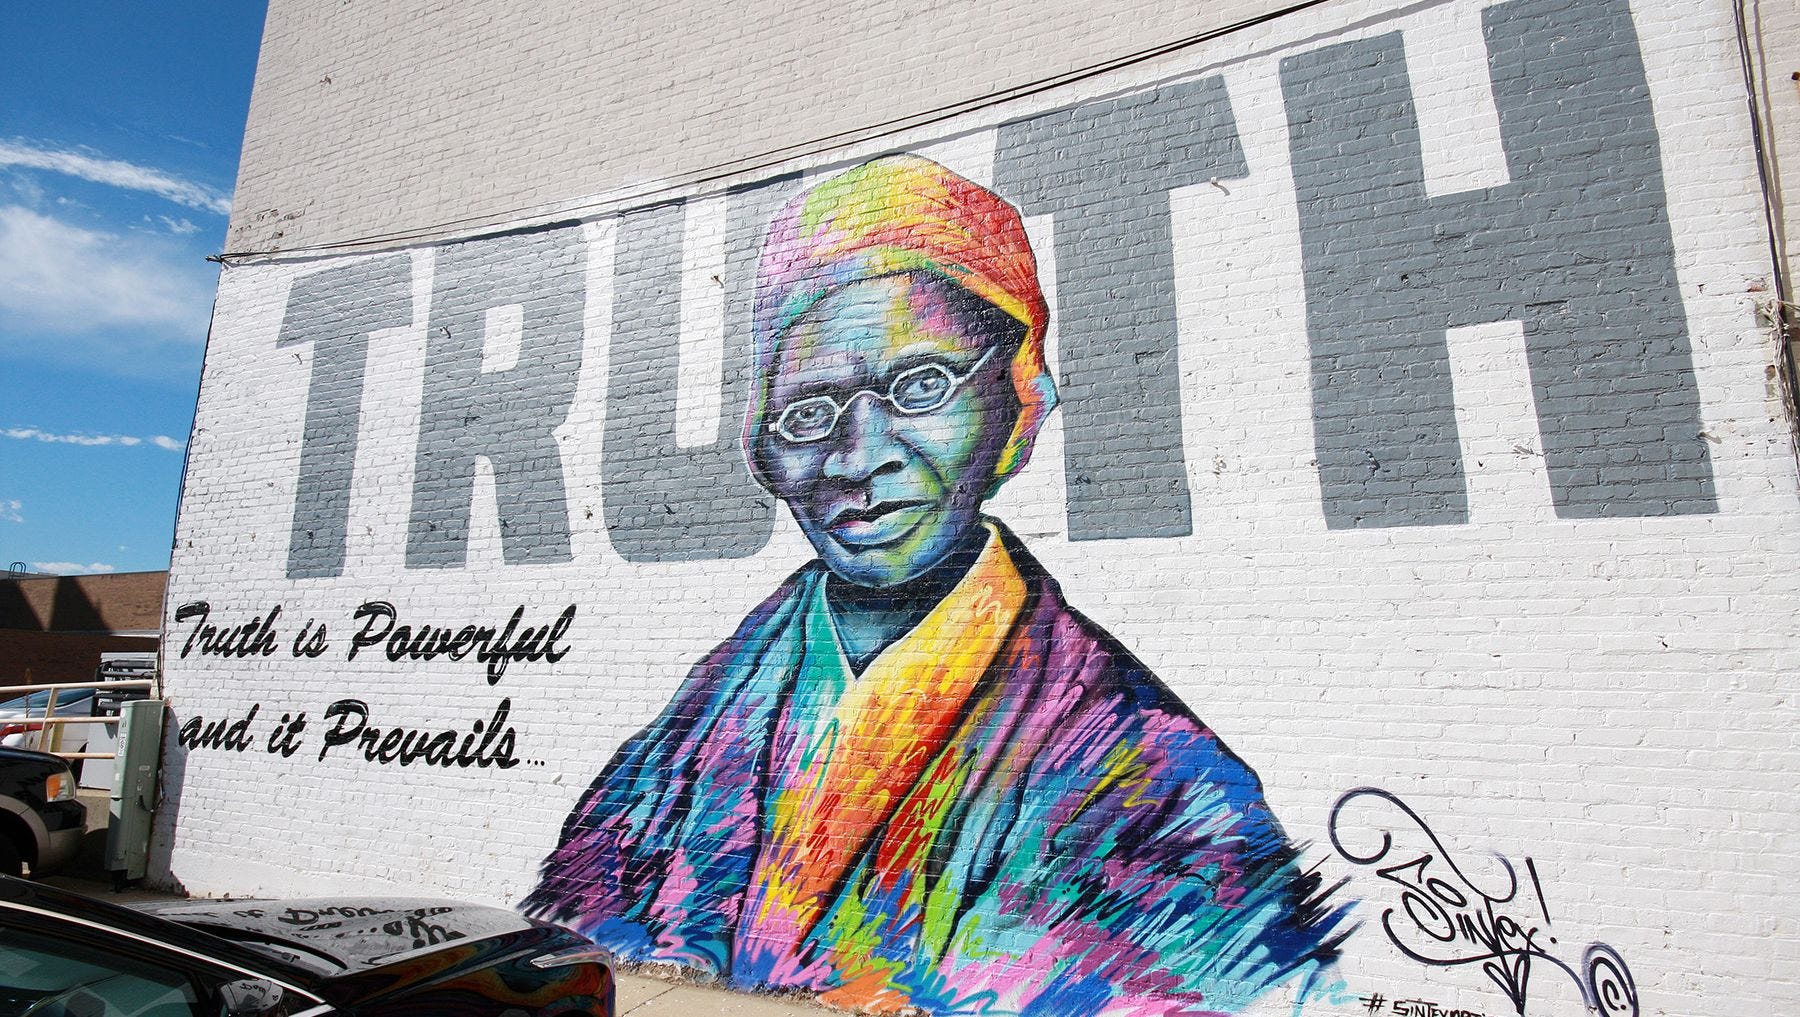 TRUTH
Truth is Powerful
and it Prevails...
Sintex!